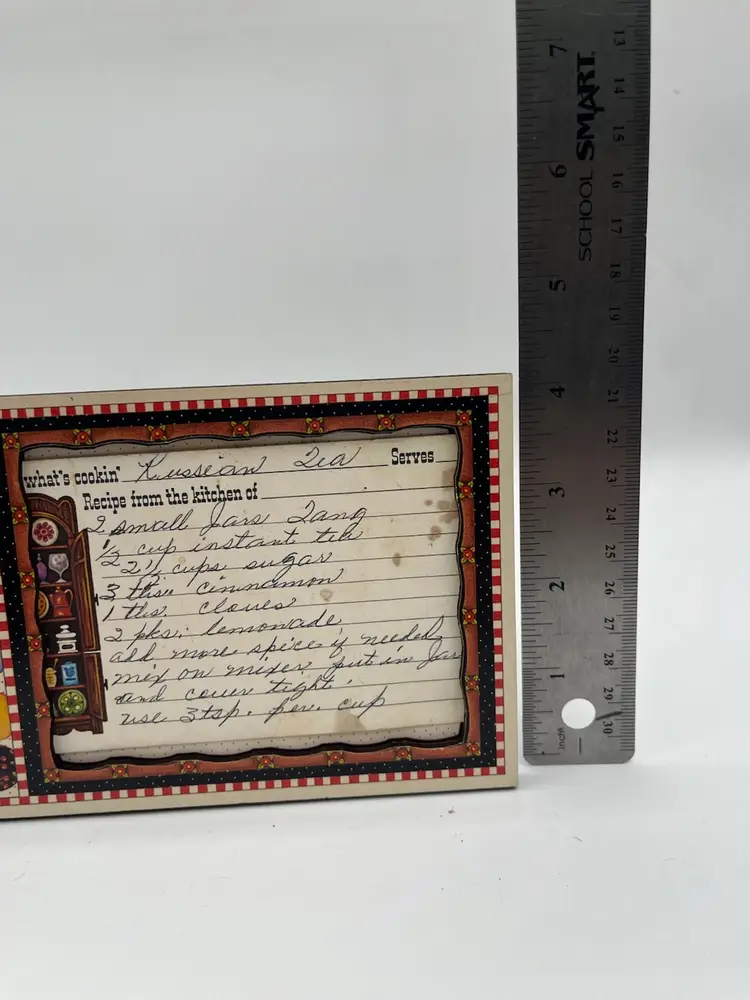 what's cookin' Russian Tea Serves
Recipe from the kitchen of
2 small Jars Tang
1/2 cup instant tea
2 1/2 cups sugar
3 tbs. cinnamon
1 tbs. cloves
2 pks. lemonade
add more spice if needed
mix on mixer put in Jar
and cover tight.
use 3 tsp. per. cup
SCHOOL SMART
7
6
5
4
3
2
1
inch
13
14
15
16
17
18
19
20
21
22
23
24
25
26
27
28
29
30